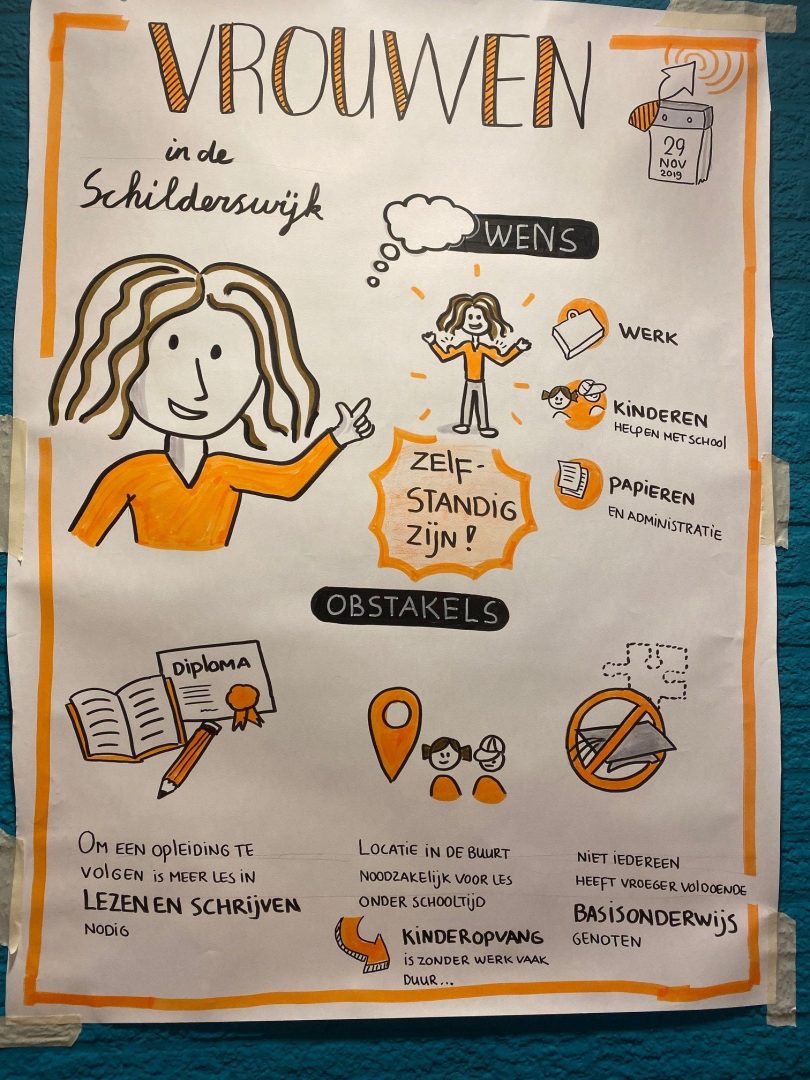 VROUWEN
in de
Schilderswijk
29
NOV
2019
WENS
WERK
KINDEREN
HELPEN MET SCHOOL
PAPIEREN
EN ADMINISTRATIE
ZELF-
STANDIG
ZIJN!
OBSTAKELS
DIPLOMA
OM EEN OPLEIDING TE
VOLGEN IS MEER LES IN
LEZEN EN SCHRIJVEN
NODIG
LOCATIE IN DE BUURT
NOODZAKELIJK VOOR LES
ONDER SCHOOLTIJD
KINDEROPVANG
IS ZONDER WERK VAAK
DUUR...
NIET IEDEREEN
HEEFT VROEGER VOLDOENDE
BASISONDERWIJS
GENOTEN